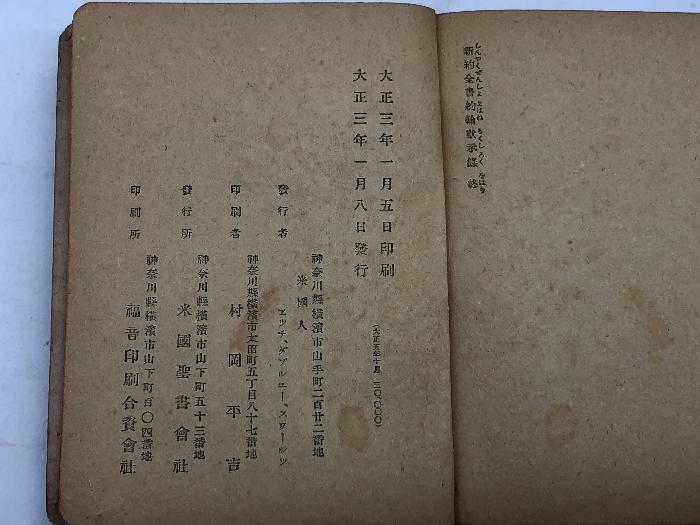 新約全書約翰默示錄 終
しんやくぜんしょ よはね もくしろく をはり
大正三年一月五日印刷
大正三年一月八日發行
(大正五年十月 三〇、〇〇〇)
神奈川縣横濱市山手町二百廿二番地
米國人
發行者 エッチ、ダブルユー、スワールツ
神奈川縣横濱市太田町五丁目八十七番地
印刷者 村岡平吉
神奈川縣横濱市山下町五十三番地
發行所 米國聖書會社
神奈川縣横濱市山下町百〇四番地
印刷所 福音印刷合資會社